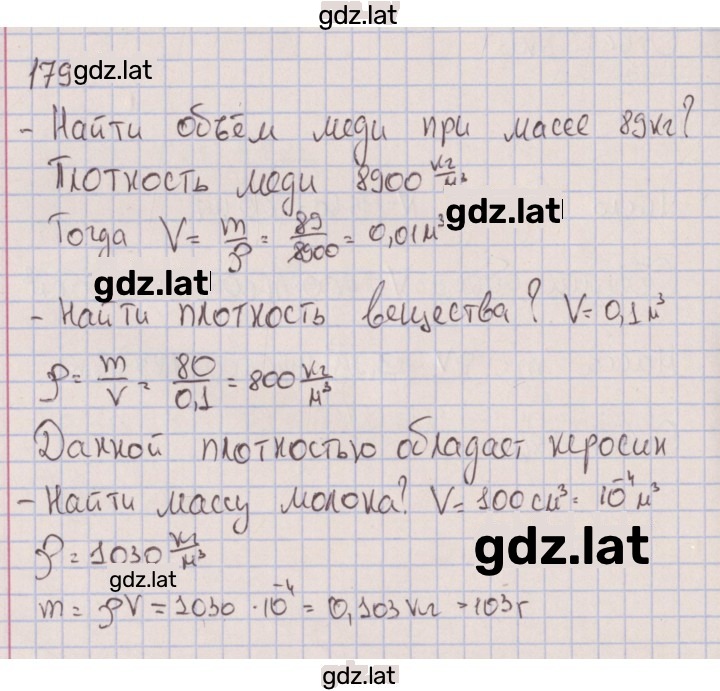 gdz.lat
179 gdz.lat
- Найти объём меди при массе 89кг?
Плотность меди 8900 кг/м³
gdz.lat
Тогда V = m/ρ = 89/8900 = 0,01м³
gdz.lat
- Найти плотность вещества? V = 0,1м³
ρ = m/V = 80/0,1 = 800 кг/м³
Данной плотностью обладает керосин
- Найти массу молока? V = 100см³ = 10⁻⁴м³
gdz.lat
ρ = 1030 кг/м³
gdz.lat
m = ρV = 1030 · 10⁻⁴ = 0,103кг = 103г
gdz.lat